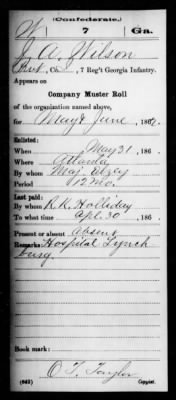 (Confederate.)
W 7 Ga.
J. A. Wilson
Pvt., Co. , 7 Reg't Georgia Infantry.
Appears on
Company Muster Roll
of the organization named above,
for May & June, 1862.
Enlisted:
When May 31, 186 .
Where Atlanta
By whom Maj. Elzey
Period 12 Mo.
Last paid:
By whom R. K. Holliday
To what time Apl. 30, 186 .
Present or absent Absent
Remarks: Hospital Lynch
burg.
Book mark:
O. T. Taylor
(642) Copyist.